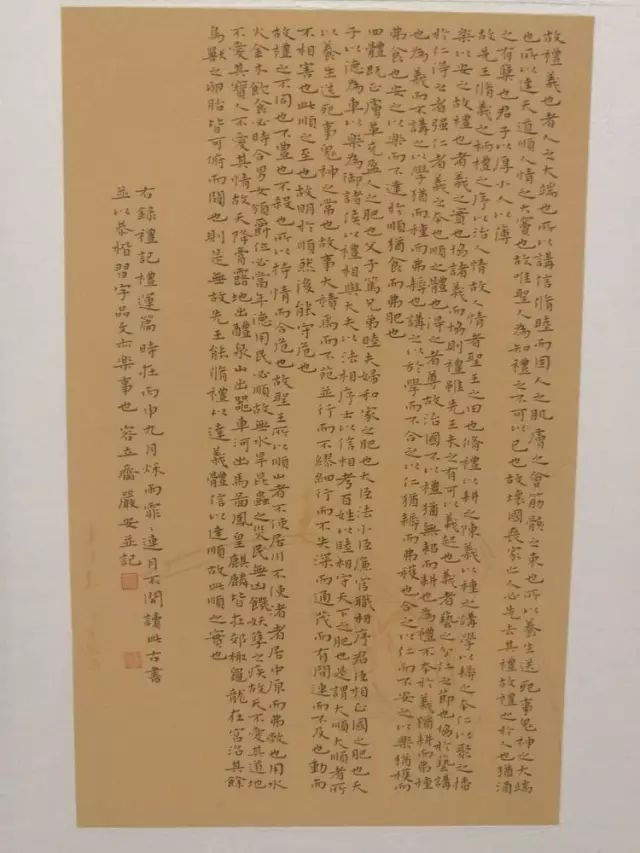 故禮義也者人之大端也所以講信脩睦而固人之肌膚之會筋骸之束也所以養生送死事鬼神之大端
也所以達天道順人情之大竇也故唯聖人為知禮之不可以已也故壞國喪家亡人必先去其禮故禮之於人也猶酒
之有櫱也君子以厚小人以薄
故先王脩義之柄禮之序以治人情故人情者聖王之田也脩禮以耕之陳義以種之講學以耨之本仁以聚之播
樂以安之故禮也者義之實也協諸義而協則禮雖先王未之有可以義起也義者藝之分仁之節也協於藝講
於仁得之者強仁者義之本也順之體也得之者尊故治國不以禮猶無耜而耕也為禮不本於義猶耕而弗種
也為義而不講之以學猶種而弗耨也講之以於學而不合之以仁猶耨而弗穫也合之以仁而不安之以樂猶穫而
弗食也安之以樂而不達於順猶食而弗肥也
四體既正膚革充盈人之肥也父子篤兄弟睦夫婦和家之肥也大臣法小臣廉官職相序君臣相正國之肥也天
子以德為車以樂為御諸侯以禮相與大夫以法相序士以信相考百姓以睦相守天下之肥也是謂大順大順者所
以養生送死事鬼神之常也故事大積焉而不苑並行而不繆細行而不失深而通茂而有間連而不及也動而
不相害也此順之至也故明於順然後能守危也
故禮之不同也不豐也不殺也所以持情而合危也故聖王所以順山者不使居川不使渚者居中原而弗敝也用水
火金木飲食必時合男女頒爵位必當年德用民必順故無水旱昆蟲之災民無凶饑妖孽之疾故天不愛其道地
不愛其寶人不愛其情故天降膏露地出醴泉山出器車河出馬圖鳳皇麒麟皆在郊棷龜龍在宮沼其餘
鳥獸之卵胎皆可俯而闚也則是無故先王能脩禮以達義體信以達順故此順之實也
右錄禮記禮運篇時在丙申九月秋雨霏々連月不開讀此古書
並以恭楷習字品文亦樂事也 容立齋嚴安並記